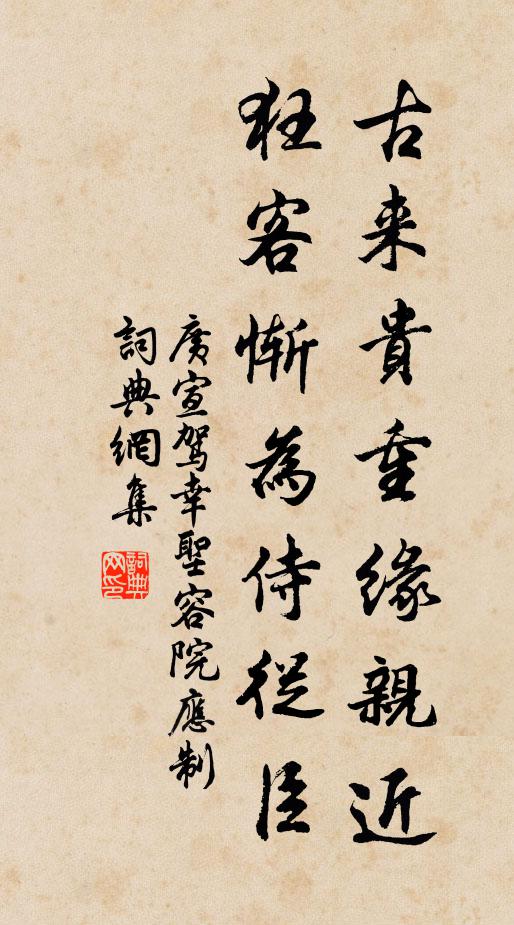 古来貴重緣親近
狂客慚為侍從臣
廣宣駕幸聖容院應制
詞典網集
詞典網印